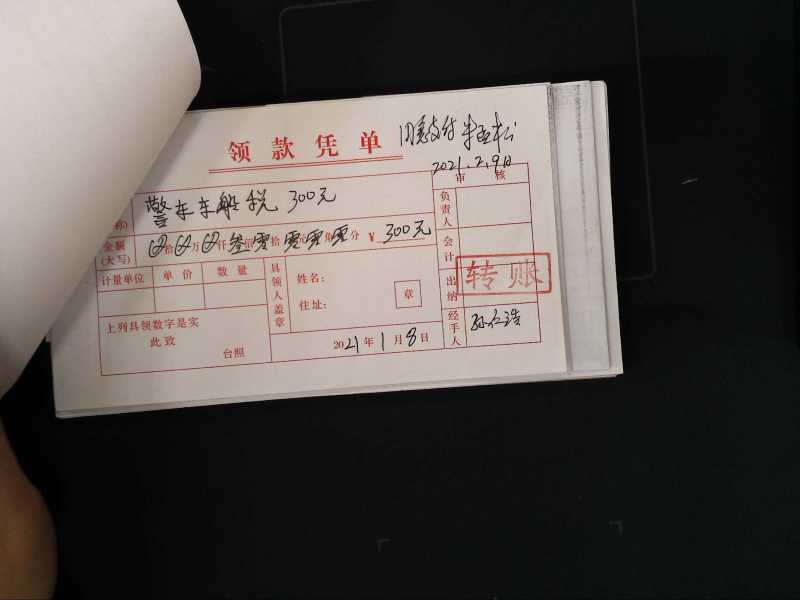 领款凭单
同意支付 朱亚松
2021.2.9日
审核
称)
警车车船税 300元
负责人
金额(大写)
拾 万 仟叁佰零拾零元零角零分 ¥300元
会计
计量单位 单价 数量
具领人盖章
姓名:
住址:
章
出纳
转账
上列具领数字是实
此致
台照
2021年1月8日
经手人
孙仁浩